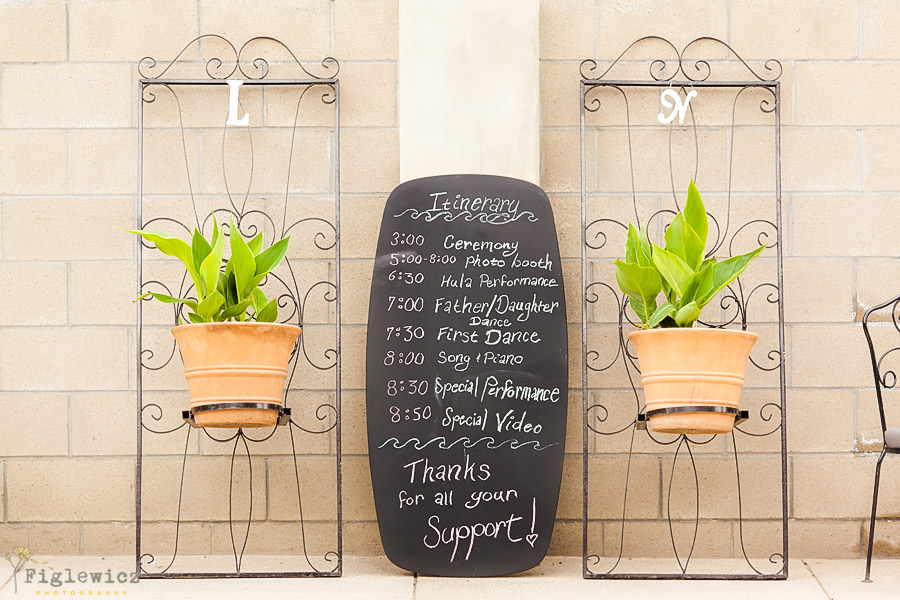 L
N
Itinerary
3:00 Ceremony
5:00-8:00 Photo booth
6:30 Hula Performance
7:00 Father/Daughter
Dance
7:30 First Dance
8:00 Song + Piano
8:30 Special Performance
8:50 Special Video
Thanks
for all your
Support!
Figlewicz
PHOTOGRAPHY